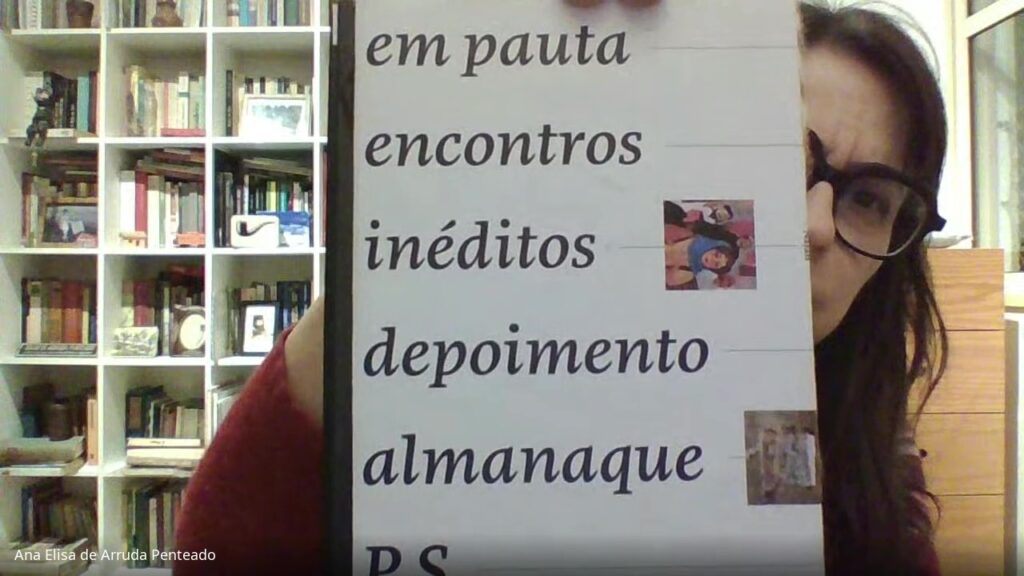 em pauta
encontros
inéditos
depoimento
almanaque
P.S.
Ana Elisa de Arruda Penteado